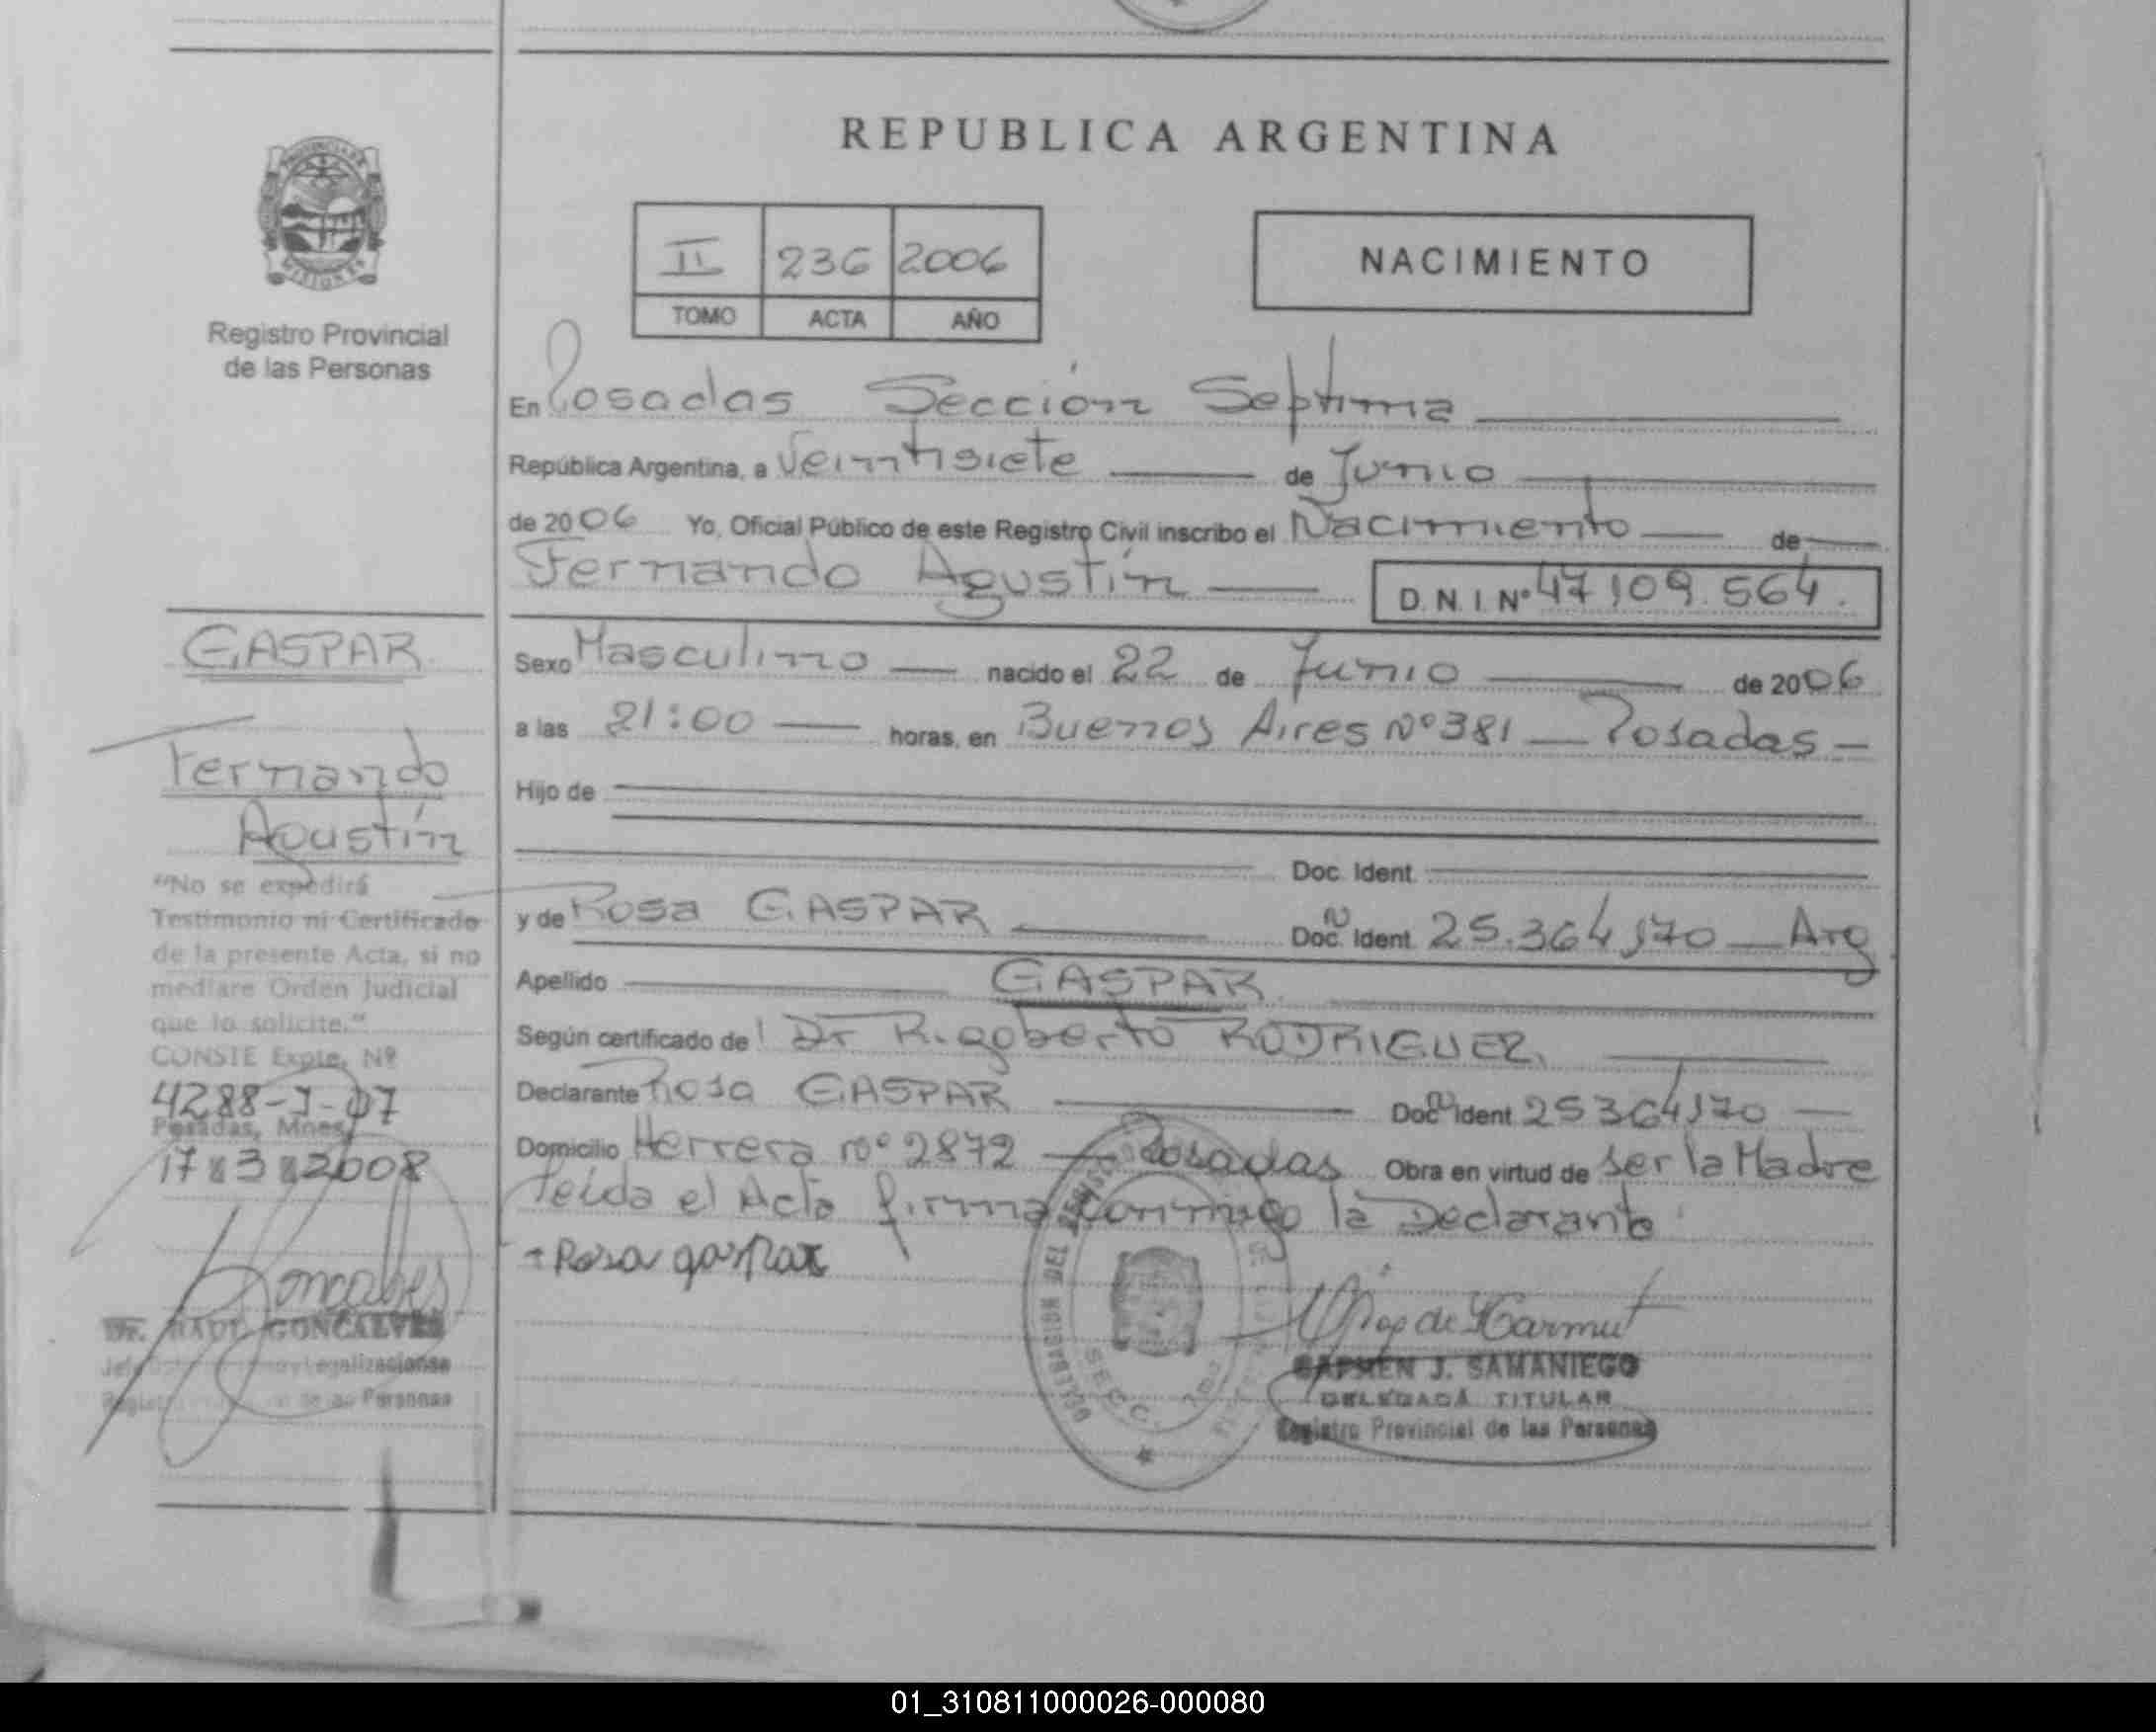 REPUBLICA ARGENTINA
PROVINCIA DE MISIONES
Registro Provincial
de las Personas
II 236 2006
TOMO ACTA AÑO
NACIMIENTO
En Posadas Sección Septima
República Argentina, a Veintisiete de Junio
de 2006 Yo, Oficial Público de este Registro Civil inscribo el Nacimiento de
Fernando Agustín D.N.I. Nº 47.109.564.
Sexo Masculino nacido el 22 de Junio de 2006
a las 21:00 horas, en Buenos Aires Nº 381 — Posadas —
Hijo de
Doc. Ident.
y de Rosa GASPAR Doc. Ident. 25.364.170 — Arg
Apellido GASPAR
Según certificado de Dr Rigoberto RODRIGUEZ.
Declarante Rosa GASPAR Doc. Ident. 25364170 —
Domicilio Herrera nº 2872 — Posadas Obra en virtud de ser la Madre
leída el Acta firma conmigo la Declarante
Rosa gaspar
GASPAR
Fernando
Agustín
"No se expedirá
Testimonio ni Certificado
de la presente Acta, si no
mediare Orden Judicial
que lo solicite."
CONSTE Expte. Nº
4288-J-07
Posadas, Mnes.
17 3 2008
Goncalves
Dr. RAUL GONCALVES
Legalizaciones
Personas
DELEGACION DEL REGISTRO
SECC. 7ma
CARMEN J. SAMANIEGO
DELEGADA TITULAR
Registro Provincial de las Personas
01_310811000026-000080